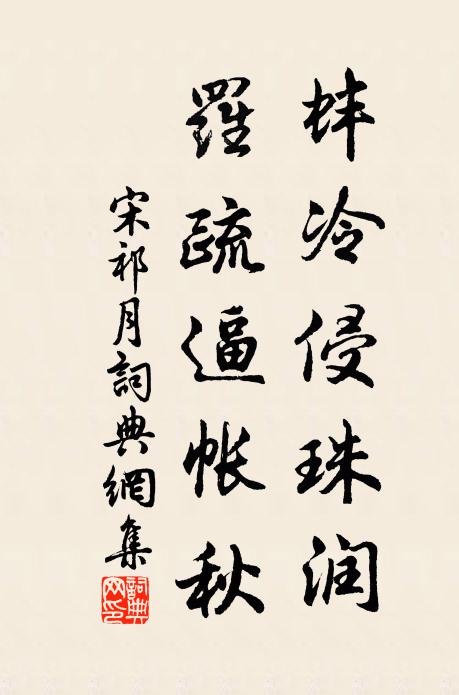 蚌冷侵珠润
羅疏逼帐秋
宋祁月詞典網集
詞典网印